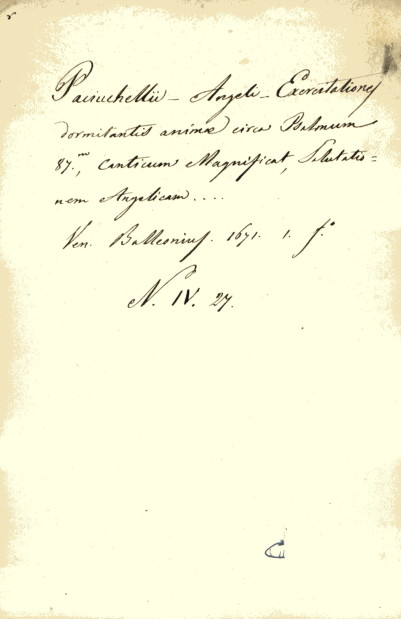 Paciuchellii - Angeli - Exercitationes
dormitantis animæ circa Psalmum
87.m, Canticum Magnificat, Salutatio=
nem Angelicam....
Ven. Balleonius. 1671. 1. f.o
N. IV. 27.